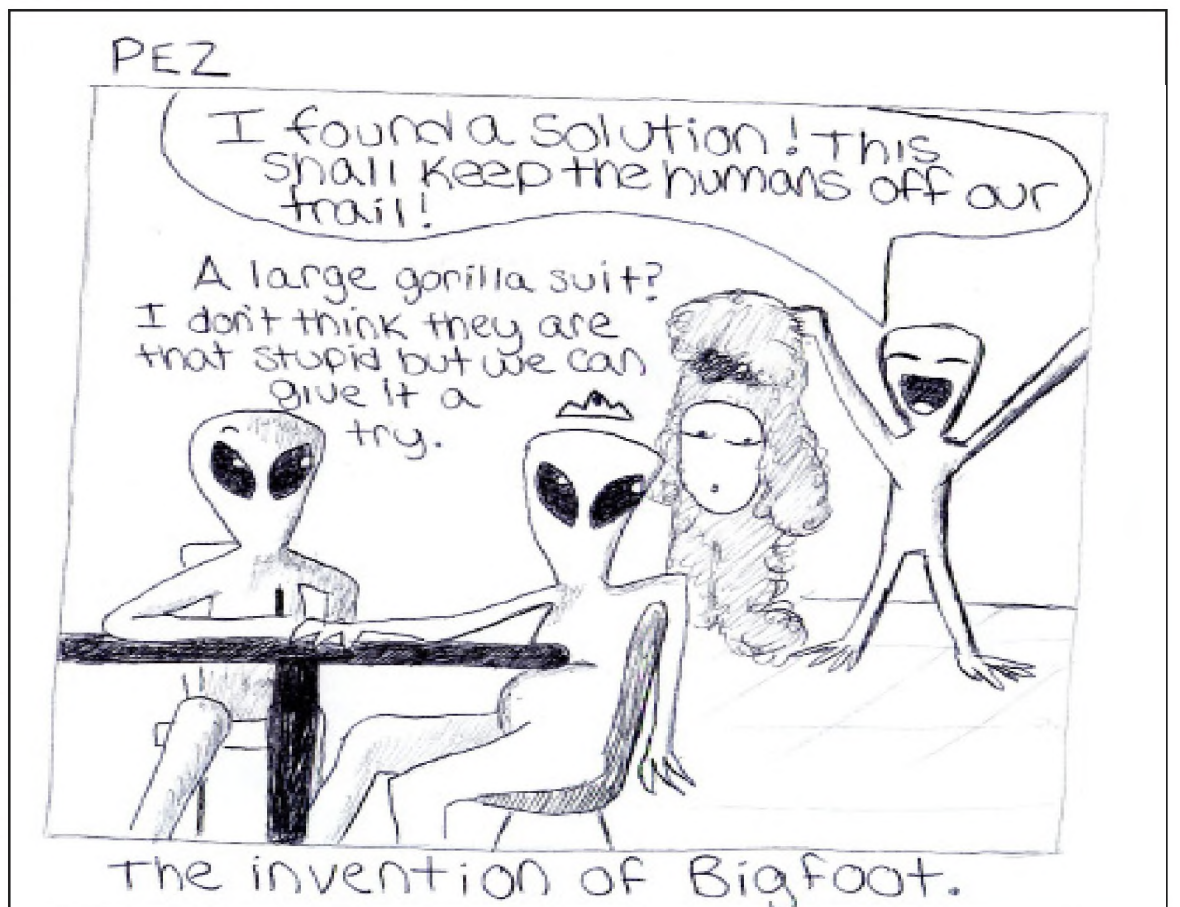 PEZ
I found a solution! This
shall keep the humans off our
trail!
A large gorilla suit?
I don't think they are
that stupid but we can
give it a
try.
The invention of Bigfoot.